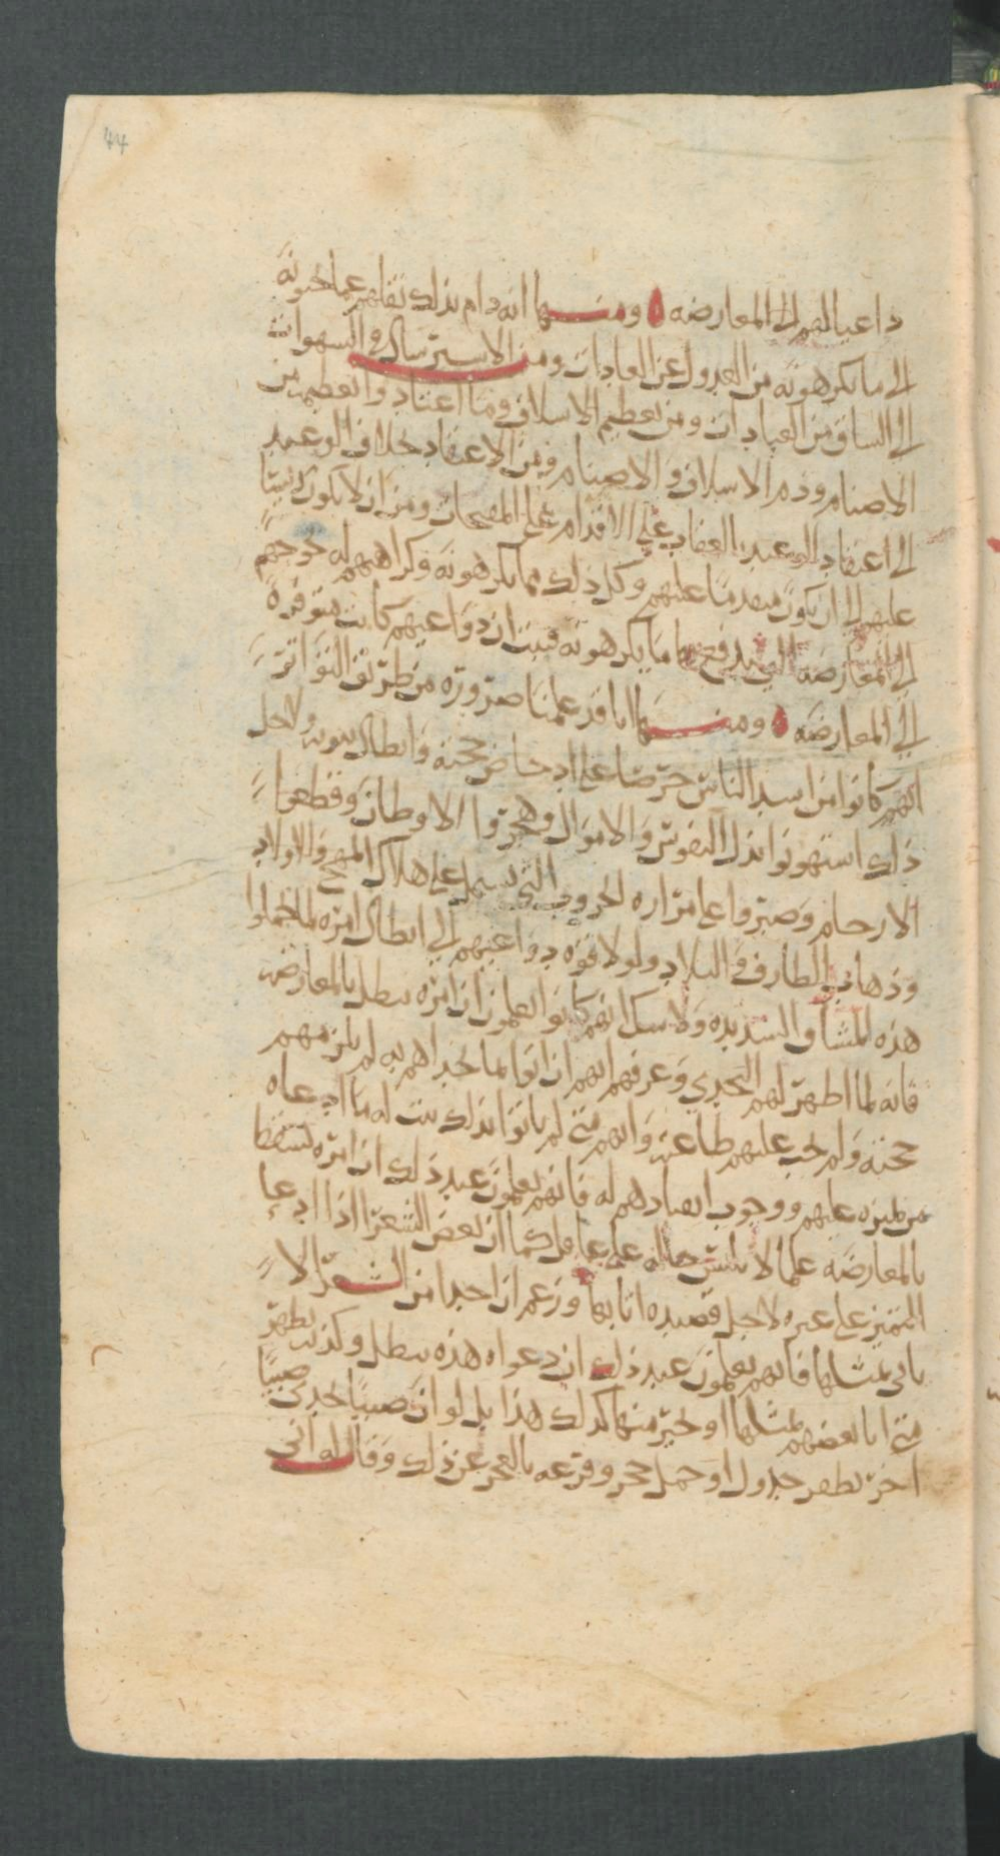 44
داعيا لهم الى المعارضه ومنها انه رام بذلك نقلهم عما يحبونه
الى ما يكرهونه من العدول عن العادات ومن الاسترسال في الشهوات
الى الشاق من العبادات ومن تعظيم الاسلاف وما اعتادوا تعظيمه من
الاصنام وذم الاسلاف والاصنام ومن الاعتقاد خلاف الوعيد
الى اعتقاد الوعيد العقاب على الاقدام على المقبحات ومن ان لا يكون
عليهم الى ان يكون مقدما عليهم وكل ذلك مما يكرهونه وكراهيتهم له تحوجهم
الى المعارضه التي يدفع بها ما يكرهونه فثبت ان دواعيهم كانت متوفرة
الى المعارضه ومنها انا قد علمنا ضرورة من طريق التواتر
انهم كانوا من اشد الناس حرصا على ادحاض حجته وابطال نبوته ولاجل
ذلك استهونوا بذل النفوس والاموال وهجروا الاوطان وقطعوا
الارحام وصبروا على مراره الحروب التي تشتمل على هلاك المهج والاولاد
وذهاب الطارف والتلاد ولولا قوه دواعيهم الى ابطال امره لما تحملوا
هذه المشاق الشديده ولا شك انهم كانوا يعلمون ان امره يبطل بالمعارضه
فانه لما اظهر لهم التحدي وعرفهم انهم ان اتوا بما تحداهم به لم يلزمهم
حجته ولم يجب عليهم طاعته وانهم متى لم ياتوا بذلك ثبت له ما ادعاه
من تميزه عليهم ووجوب انقيادهم له فانهم يعلمون عند ذلك ان امره
بالمعارضه علما لا يلتبس حاله على عاقل كما ان بعض الشعرا اذا ادعا
التميز على غيره لاجل قصيده اتا بها وزعم ان احدا من الشعرا لا
ياتي بمثلها فانهم يعلمون عند ذلك ان دعواه هذه تبطل وكذبه يظهر
متى اتا بعضهم بمثلها او خير منها كذلك هذا بل لو ان صبيا تحدى صبيا
اخر بطفر جدول او حمل حجر وقرعه بالعجز عن ذلك وقال لو اني